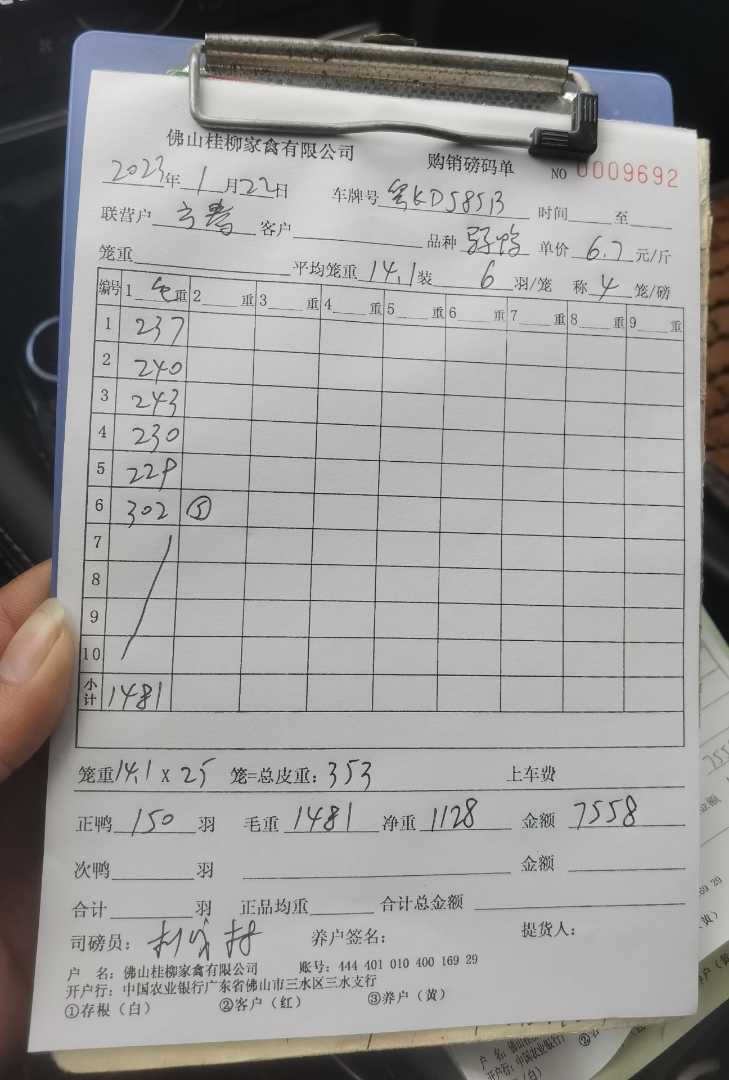 佛山桂柳家禽有限公司 购销磅码单 NO 0009692
2023年1月22日 车牌号 粤KD585B 时间 至
联营户 客户 品种 单价 6.7 元/斤
笼重 平均笼重 14.1 装 6 羽/笼 称 4 笼/磅
编号 1 毛重 2 重 3 重 4 重 5 重 6 重 7 重 8 重 9 重
1 237
2 240
3 243
4 230
5 229
6 302 ⑤
7
8
9
10
小计 1481
笼重 14.1 x 25 笼=总皮重: 353 上车费
正鸭 150 羽 毛重 1481 净重 1128 金额 7558
次鸭 羽 金额
合计 羽 正品均重 合计总金额
司磅员: 养户签名: 提货人:
户 名: 佛山桂柳家禽有限公司 账号: 444 401 010 400 169 29
开户行: 中国农业银行广东省佛山市三水区三水支行
①存根（白） ②客户（红） ③养户（黄）